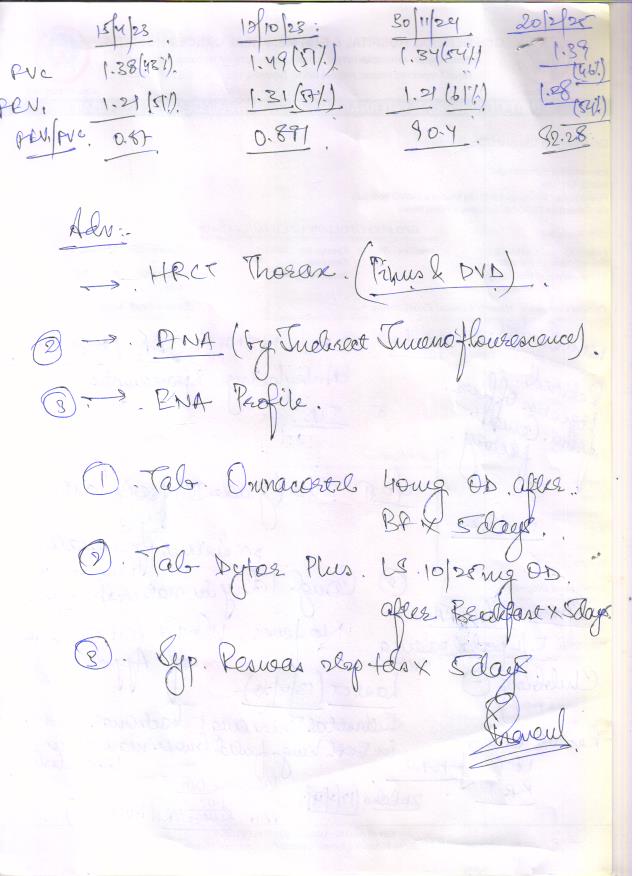 15/4/23 12/10/23: 30/11/24 20/2/25
FVC 1.38(43%) 1.49(51%) 1.34(54%) 1.39 (46%)
FEV1 1.21(51%) 1.31(57%) 1.21(61%) 1.28 (54%)
FEV1/FVC 0.87 0.891 90.4 92.28
Adv:-
→ HRCT Thorax. (Films & DVD).
② → ANA (by Indirect Imunoflourescence).
③ → ENA Profile.
① Tab. Omnacortil 40mg OD after
BF x 5 days.
② Tab Dytor Plus. LS 10/25mg OD
after Breakfast x 5days.
③ Syp. Reswas 2tsp tds x 5 days